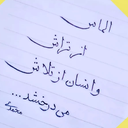 الماس
از تراش
و انسان از تلاش
می درخشد...